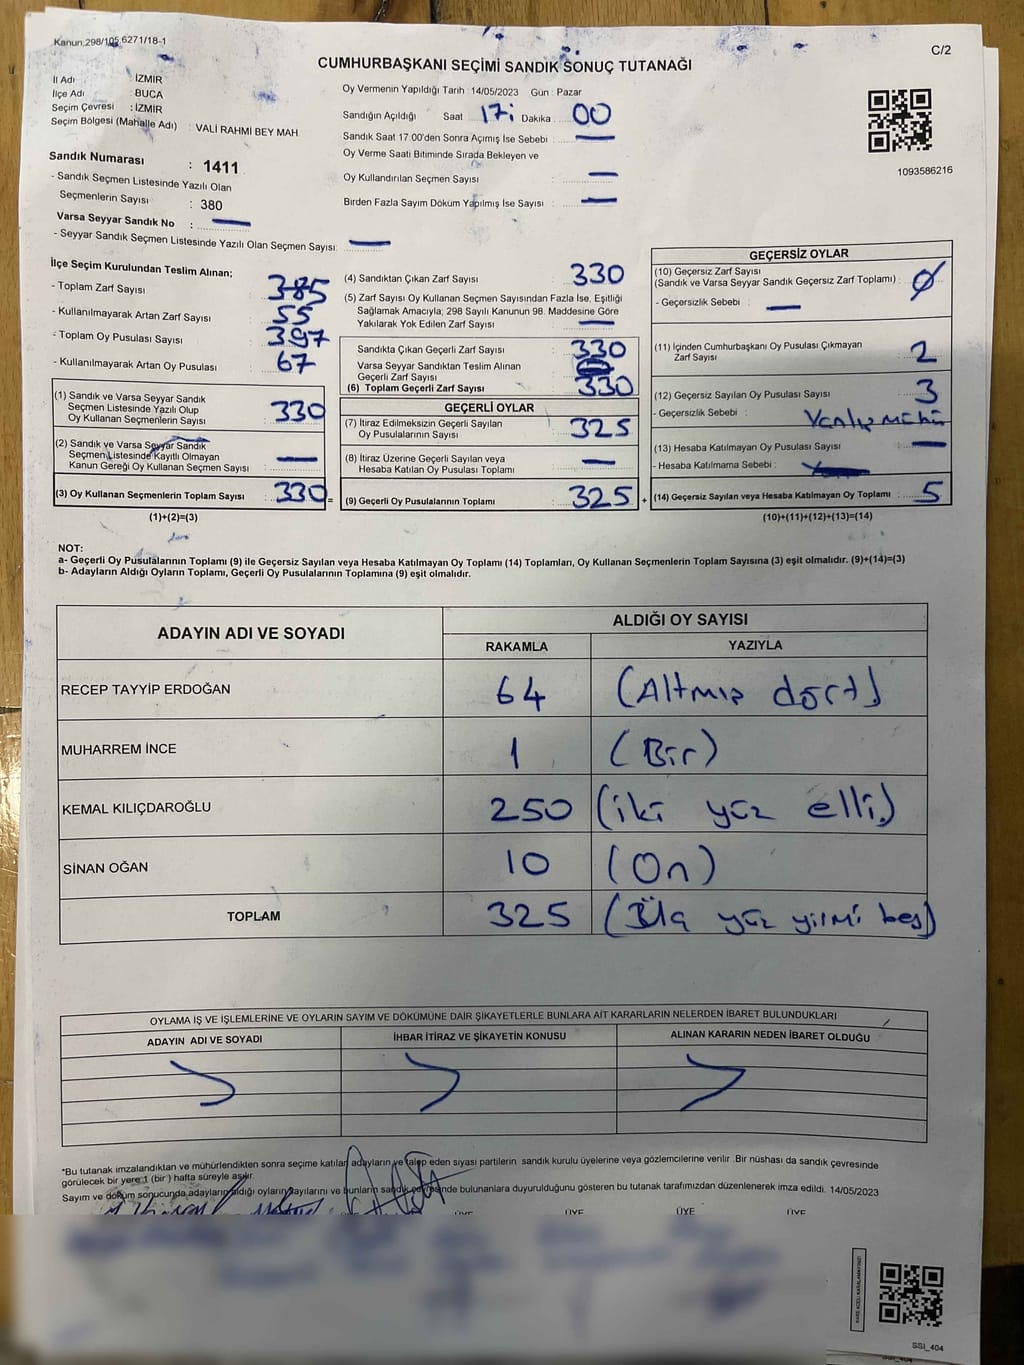 Kanun,298/105,6271/18-1
C/2
CUMHURBAŞKANI SEÇİMİ SANDIK SONUÇ TUTANAĞI
İl Adı : İZMİR
İlçe Adı : BUCA
Seçim Çevresi : İZMİR
Seçim Bölgesi (Mahalle Adı) : VALİ RAHMİ BEY MAH
Sandık Numarası : 1411
- Sandık Seçmen Listesinde Yazılı Olan
Seçmenlerin Sayısı : 380
Varsa Seyyar Sandık No : —
- Seyyar Sandık Seçmen Listesinde Yazılı Olan Seçmen Sayısı: —
Oy Vermenin Yapıldığı Tarih : 14/05/2023 Gün : Pazar
Sandığın Açıldığı Saat 17: Dakika 00
Sandık Saat 17 00'den Sonra Açımış İse Sebebi : —
Oy Verme Saati Bitiminde Sırada Bekleyen ve
Oy Kullandırılan Seçmen Sayısı : —
Birden Fazla Sayım Döküm Yapılmış İse Sayısı : —
1093586216
İlçe Seçim Kurulundan Teslim Alınan;
- Toplam Zarf Sayısı : 385
- Kullanılmayarak Artan Zarf Sayısı : 55
- Toplam Oy Pusulası Sayısı : 397
- Kullanılmayarak Artan Oy Pusulası : 67
(1) Sandık ve Varsa Seyyar Sandık
Seçmen Listesinde Yazılı Olup
Oy Kullanan Seçmenlerin Sayısı : 330
(2) Sandık ve Varsa Seyyar Sandık
Seçmen Listesinde Kayıtlı Olmayan
Kanun Gereği Oy Kullanan Seçmen Sayısı : —
(3) Oy Kullanan Seçmenlerin Toplam Sayısı : 330 =
(1)+(2)=(3)
(4) Sandıktan Çıkan Zarf Sayısı : 330
(5) Zarf Sayısı Oy Kullanan Seçmen Sayısından Fazla İse, Eşitliği
Sağlamak Amacıyla; 298 Sayılı Kanunun 98. Maddesine Göre
Yakılarak Yok Edilen Zarf Sayısı : —
Sandıkta Çıkan Geçerli Zarf Sayısı : 330
Varsa Seyyar Sandıktan Teslim Alınan
Geçerli Zarf Sayısı :
(6) Toplam Geçerli Zarf Sayısı : 330
GEÇERLİ OYLAR
(7) İtiraz Edilmeksizin Geçerli Sayılan
Oy Pusulalarının Sayısı : 325
(8) İtiraz Üzerine Geçerli Sayılan veya
Hesaba Katılan Oy Pusulası Toplamı : —
(9) Geçerli Oy Pusulalarının Toplamı : 325 +
GEÇERSİZ OYLAR
(10) Geçersiz Zarf Sayısı
(Sandık ve Varsa Seyyar Sandık Geçersiz Zarf Toplamı) : 0
- Geçersizlik Sebebi : —
(11) İçinden Cumhurbaşkanı Oy Pusulası Çıkmayan
Zarf Sayısı : 2
(12) Geçersiz Sayılan Oy Pusulası Sayısı : 3
- Geçersizlik Sebebi : Yanlış mühür
(13) Hesaba Katılmayan Oy Pusulası Sayısı : —
- Hesaba Katılmama Sebebi :
(14) Geçersiz Sayılan veya Hesaba Katılmayan Oy Toplamı : 5
(10)+(11)+(12)+(13)=(14)
NOT:
a- Geçerli Oy Pusulalarının Toplamı (9) ile Geçersiz Sayılan veya Hesaba Katılmayan Oy Toplamı (14) Toplamları, Oy Kullanan Seçmenlerin Toplam Sayısına (3) eşit olmalıdır. (9)+(14)=(3)
b- Adayların Aldığı Oyların Toplamı, Geçerli Oy Pusulalarının Toplamına (9) eşit olmalıdır.
ADAYIN ADI VE SOYADI ALDIĞI OY SAYISI
RAKAMLA YAZIYLA
RECEP TAYYİP ERDOĞAN 64 (Altmış dört)
MUHARREM İNCE 1 (Bir)
KEMAL KILIÇDAROĞLU 250 (iki yüz elli)
SİNAN OĞAN 10 (On)
TOPLAM 325 (Üç yüz yirmi beş)
OYLAMA İŞ VE İŞLEMLERİNE VE OYLARIN SAYIM VE DÖKÜMÜNE DAİR ŞİKAYETLERLE BUNLARA AİT KARARLARIN NELERDEN İBARET BULUNDUKLARI
ADAYIN ADI VE SOYADI İHBAR İTİRAZ VE ŞİKAYETİN KONUSU ALINAN KARARIN NEDEN İBARET OLDUĞU
*Bu tutanak imzalandıktan ve mühürlendikten sonra seçime katılan adayların ve talep eden siyasi partilerin sandık kurulu üyelerine veya gözlemcilerine verilir .Bir nüshası da sandık çevresinde
görülecek bir yere 1 (bir ) hafta süreyle asılır.
Sayım ve döküm sonucunda adayların aldığı oyların sayılarını ve bunların sandık çevresinde bulunanlara duyurulduğunu gösteren bu tutanak tarafımızdan düzenlenerek imza edildi. 14/05/2023
ÜYE ÜYE ÜYE ÜYE
SSI_404